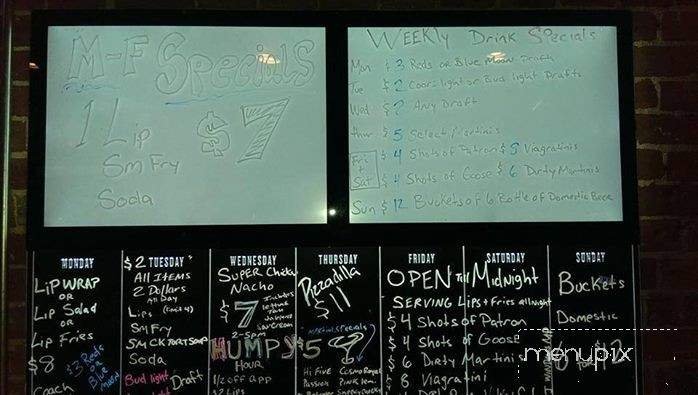 M-F Specials
1 Lip $7
Sm Fry
Soda
Weekly Drink Specials
Mon $3 Reds or Blue Moon Draft
Tue $2 Coors light or Bud light Drafts
Wed $? Any Draft
Thur $5 Select Martinis
Fri + Sat $4 Shots of Patron $8 Viagratinis
$4 Shots of Goose $6 Dirty Martinis
Sun $12 Buckets of 6 Bottle of Domestic Beer
MONDAY
Lip WRAP
OR
Lip Salad
OR
Lip Fries
$8
$3 Reds or Blue moon
Coach
$2 TUESDAY
All Items
2 Dollars
All Day
Lips
Sm Fry
Smcktory Soup
Soda
Bud light Draft
WEDNESDAY
Super Chicken
Nacho
$7
lettuce
Tom
Sour Cream
2-5pm
HUMPY'S
Hour
1/2 off App
$2 Lips
THURSDAY
Pizzadilla
$11
Martini Specials
$5
Hi Five Cosmo Royal
Passion Pink
FRIDAY SATURDAY
OPEN Till Midnight
SERVING Lips + Fries all night
$4 Shots of Patron
$4 Shots of Goose
$6 Dirty Martinis
$8 Viagratini
SUNDAY
Buckets
Domestic
6 for $12
menupix